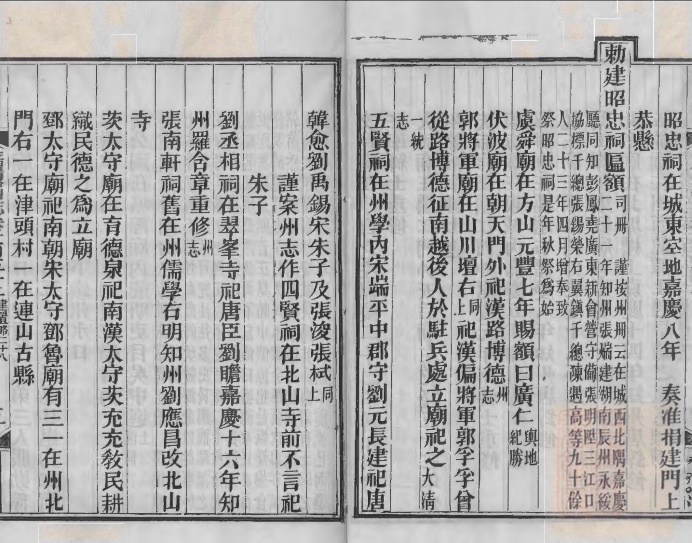 昭忠祠在城東空地嘉慶八年　奏准捐建門上
恭懸
勅建昭忠祠匾額司冊　謹按州冊云在城西北隅嘉慶
二十一年知州張端建湖南辰州永綏
廳同知彭鳳堯廣東新會營守備張明陞三江口
協標千總張錫榮右翼鎮千總陳邁高等九十餘
人二十三年四月增奉致
祭昭忠祠是年秋祭為始
虞舜廟在方山元豐七年賜額曰廣仁輿地
紀勝
伏波廟在朝天門外祀漢路博德州
志
郭將軍廟在山川壇右同
上祀漢偏將軍郭孚孚曾
從路博德征南越後人於駐兵處立廟祀之大清
一統
志
五賢祠在州學內宋端平中郡守劉元長建祀唐
韓愈劉禹錫宋朱子及張浚張栻同
上
謹案州志作四賢祠在北山寺前不言祀
朱子
劉丞相祠在翠峯寺祀唐臣劉瞻嘉慶十六年知
州羅含章重修州
志
張南軒祠舊在州儒學右明知州劉應昌改北山
寺
茨太守廟在育德泉祀南漢太守茨充充教民耕
織民德之為立廟
鄧太守廟祀南朝宋太守鄧魯廟有三一在州北
門右一在津頭村一在連山古縣